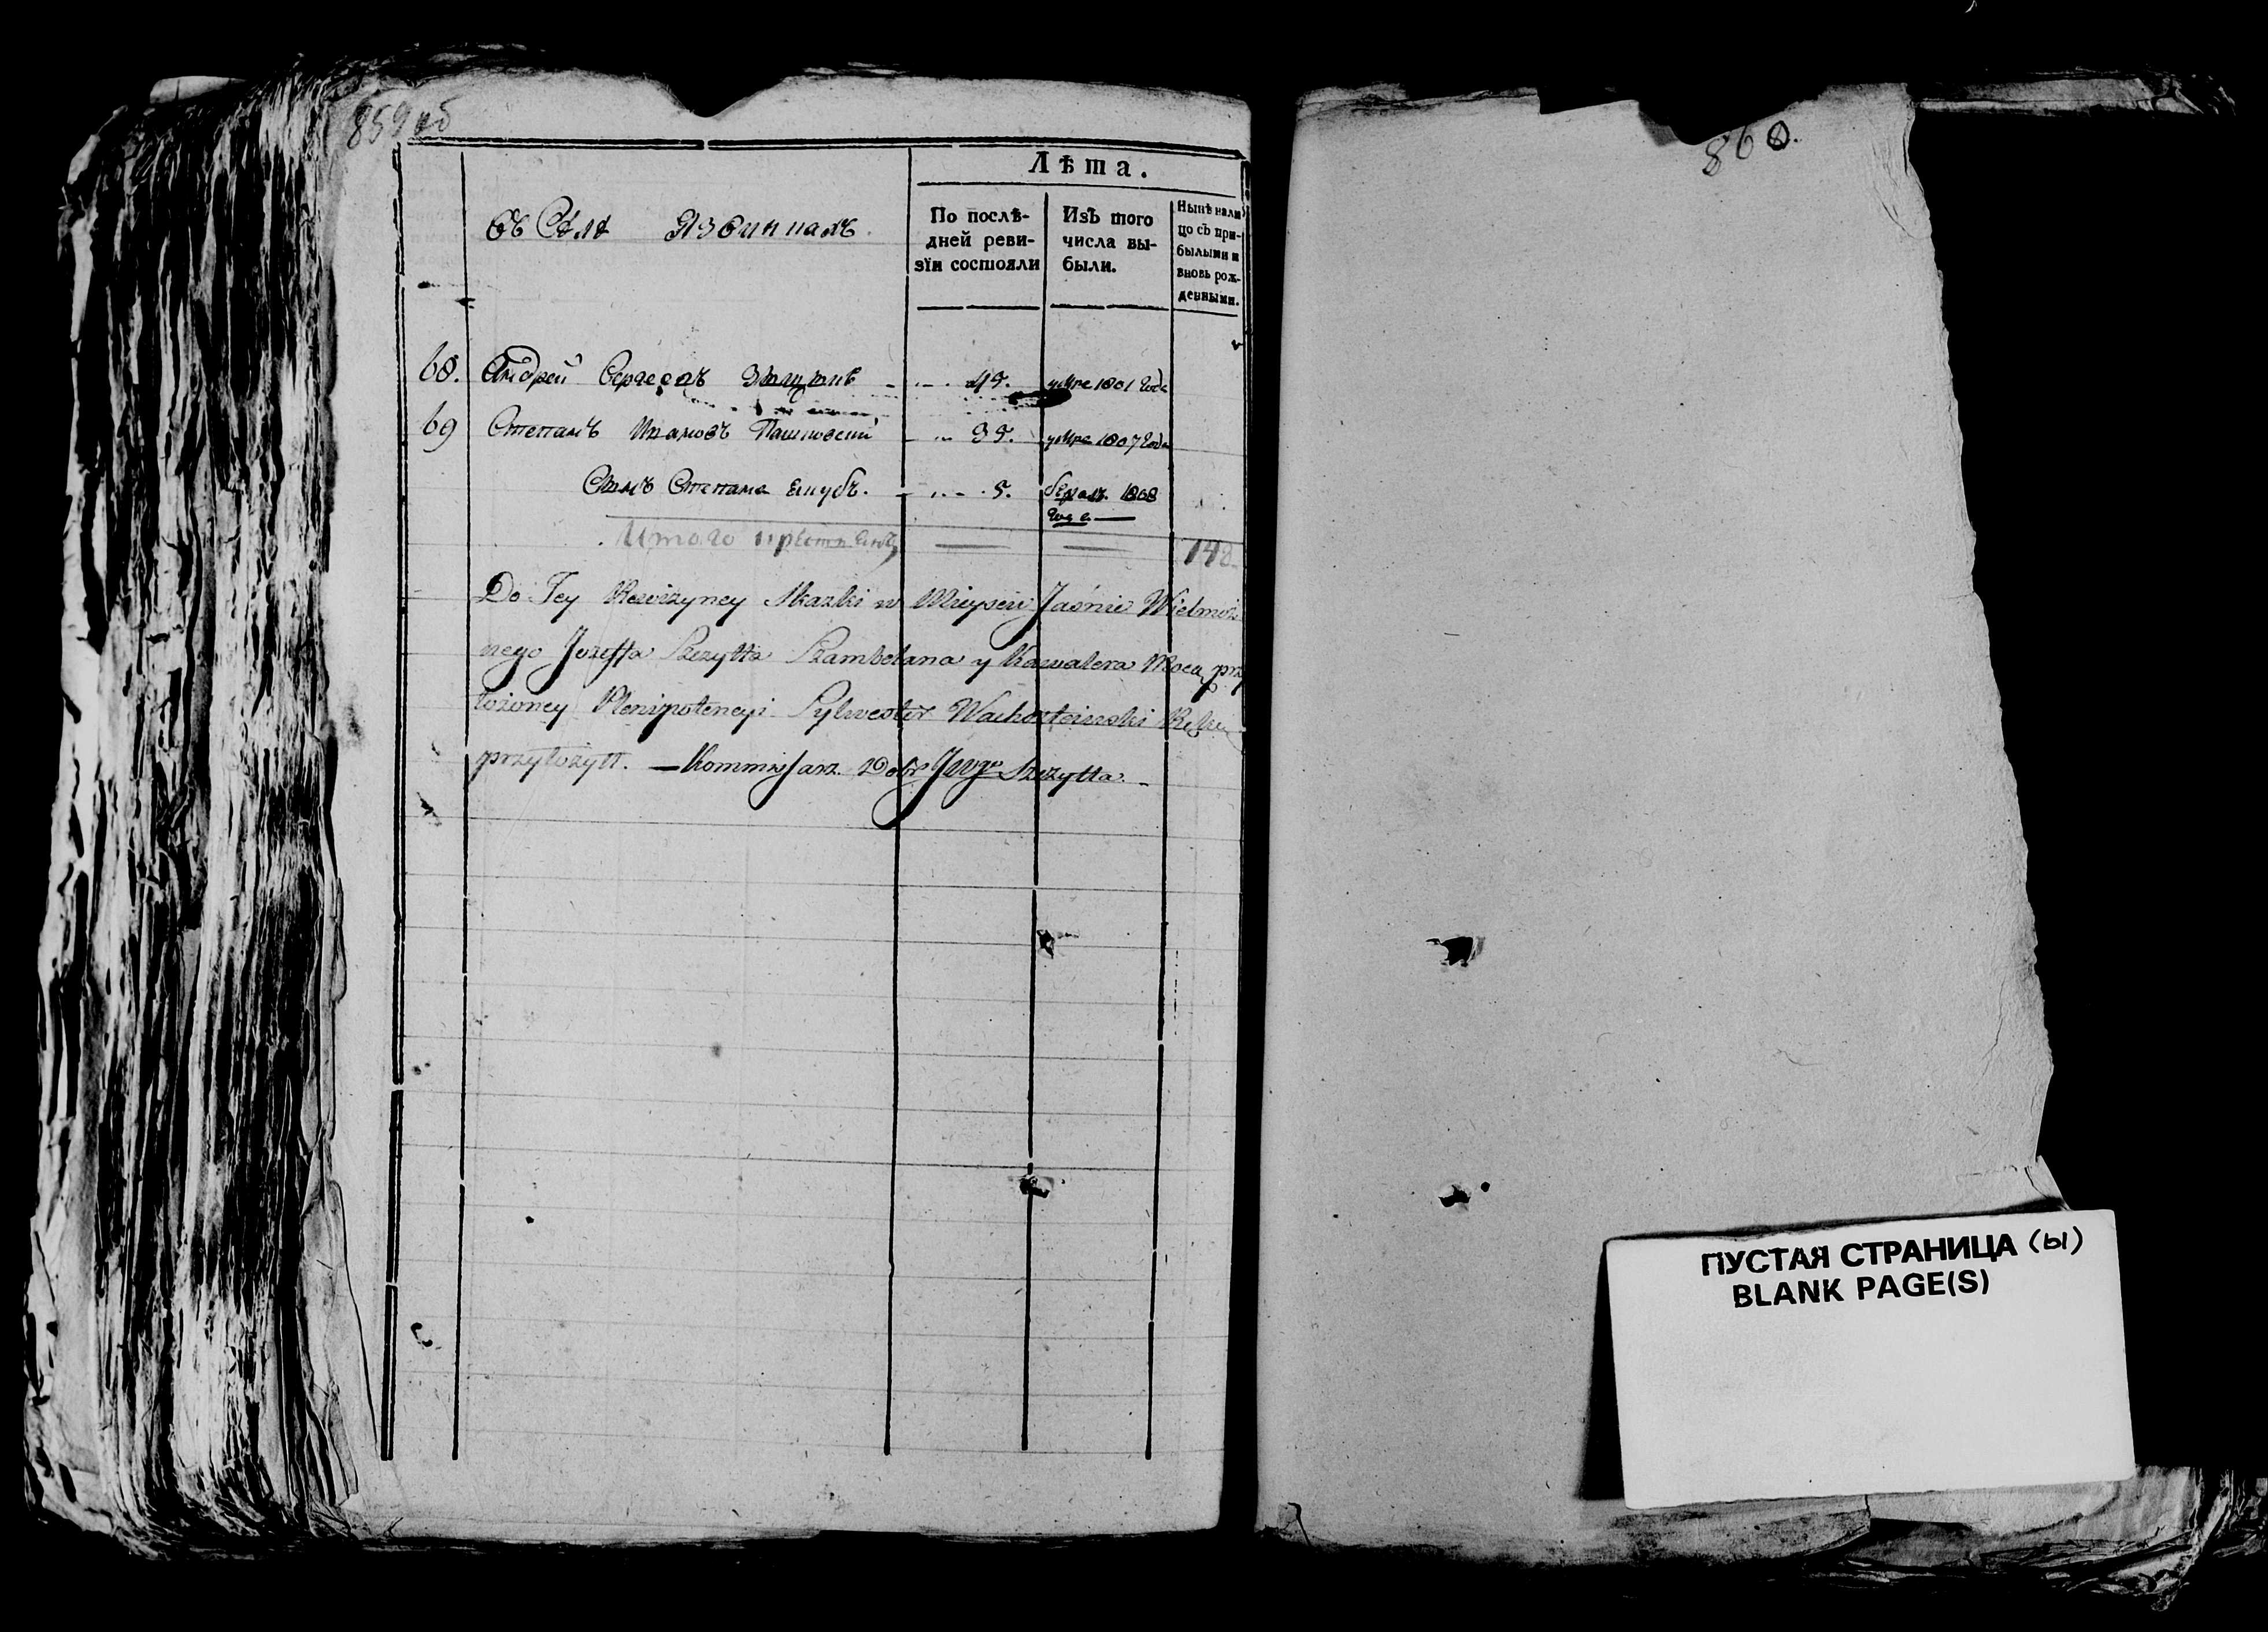 859 об
860.
Лѣта.
Въ Селѣ Язвинкахъ.
По послѣ-
дней реви-
зїи состояли
Изъ того
числа вы-
были.
Нынѣ нали
цо съ при-
былыми и
вновь рож-
денными.
68. Андрей Сергеевъ 45. умре 1801 года
69 Степанъ Ивановъ Пашковский 35. умре 1807 года
Сынъ Степана Якубъ. 5. бежалъ 1808
года
Итого 148
Do Tey Rewizyney Skazki w Mieyscu Jaśnie Wielmoż
nego Jozeffa Szczytta Szambelana y Kawalera Mocą przy
łożoney Plenipotencyi Sylwester Rękę
przyłożył. — Kommissarz Dobr JWgo Szczytta.
ПУСТАЯ СТРАНИЦА (Ы)
BLANK PAGE(S)